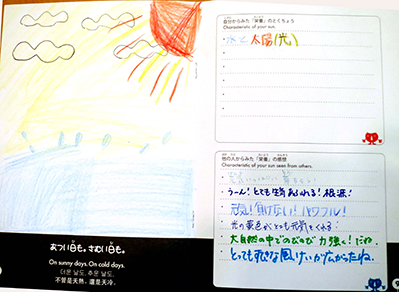 あつい日も。さむい日も。
On sunny days. On cold days.
더운 날도, 추운 날도.
不管是天熱、還是天冷。
自分からみた「栄養」のとくちょう
Characteristic of your sun.
水と太陽(光)
他の人からみた「栄養」の感想
Characteristic of your sun seen from others.
うーん!とても生気あふれる!根源!
強!負けない!パワフル!
光の黄色がとても元気をくれる!
大自然の中でのびのび力強く!だね。
とってもすてきな風けいが広がったね。